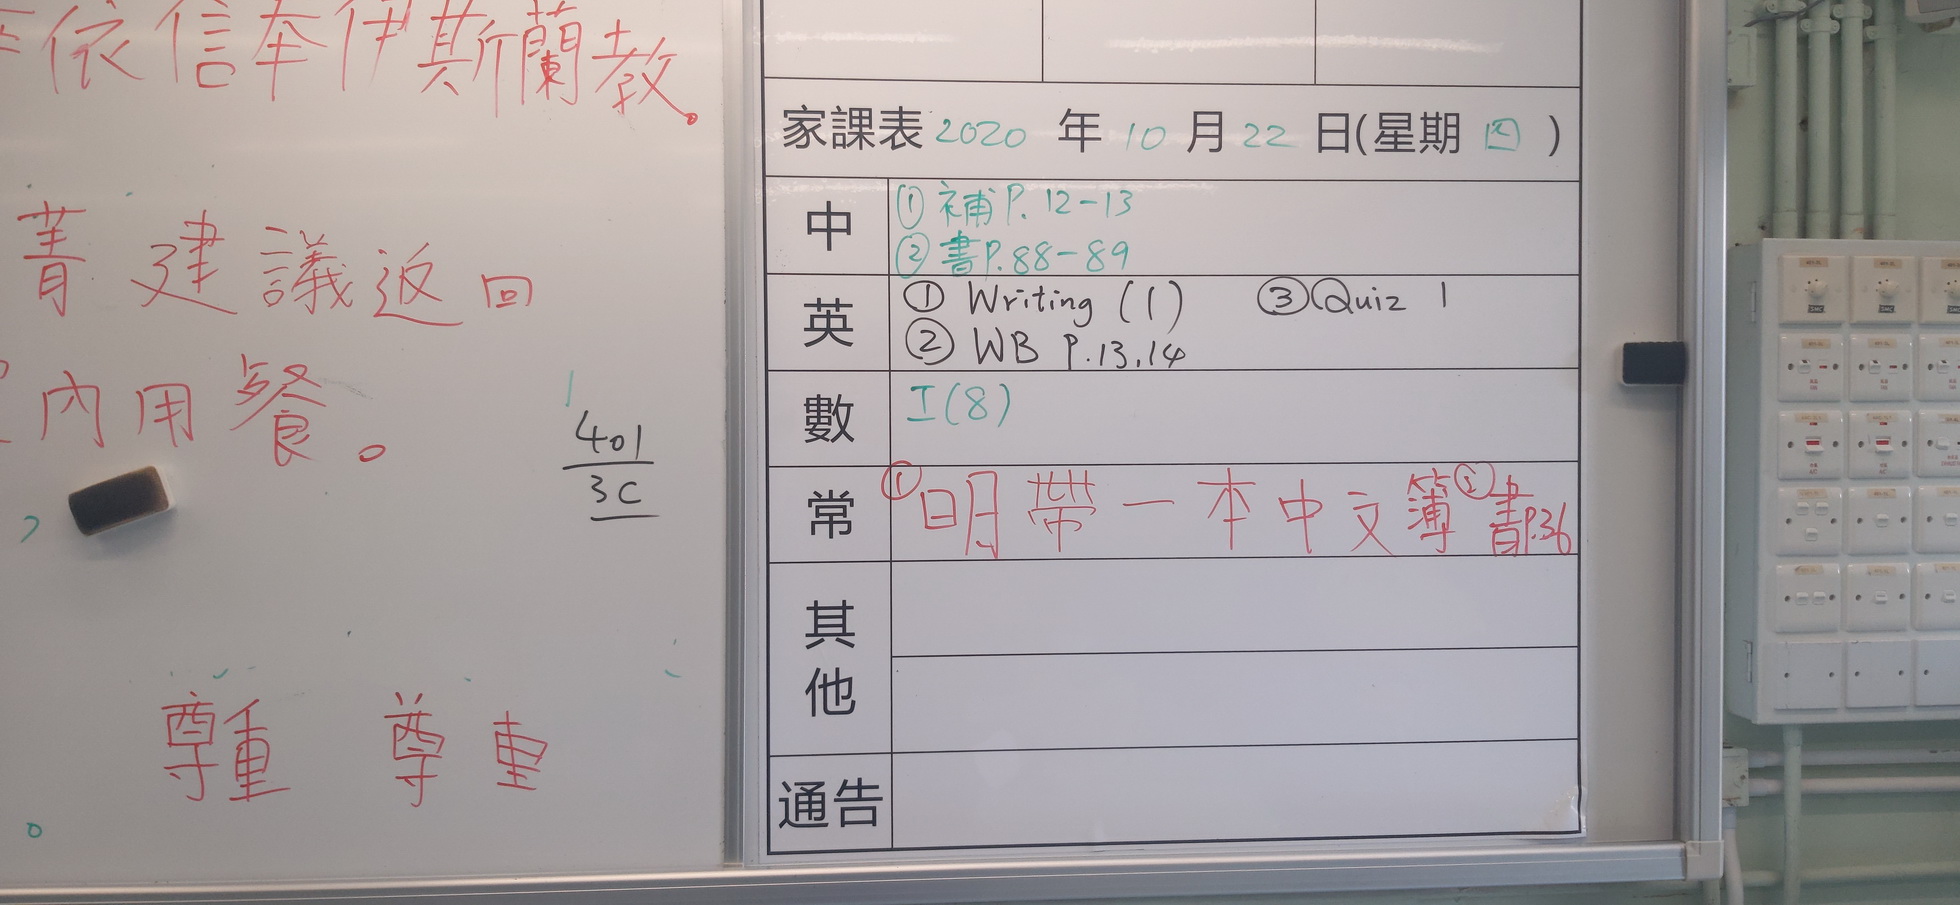 依信奉伊斯蘭教。
菁建議返回
內用餐。
401
3C
尊重 尊重
家課表2020年10月22日(星期四)
中
①補P.12-13
②書P.88-89
英
①Writing (1) ③Quiz 1
②WB P.13,14
數
I(8)
常
①明帶一本中文簿②書P.36
其他
通告